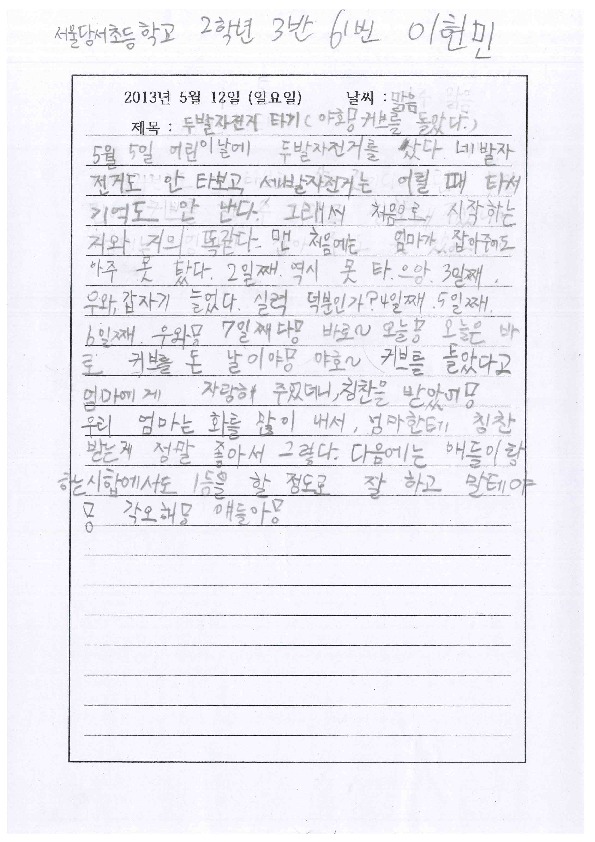 서울당서초등학교 2학년 3반 61번 이현민
2013년 5월 12일 (일요일) 날씨 : 맑음
제목 : 두발자전거 타기(야호! 커브를 돌았다.)
5월 5일 어린이날에 두발자전거를 샀다. 네발자
전거도 안 타보고 세발자전거는 어릴 때 타서
기억도 안 난다. 그래서 처음으로 시작하는
거와 거의 똑같다. 맨 처음에는 엄마가 잡아주어도
아주 못 탔다. 2일째. 역시 못 타. 으앙. 3일째.
우와, 갑자기 들었다. 실력 덕분인가? 4일째. 5일째.
6일째. 우와! 7일째다! 바로~ 오늘! 오늘은 바
로 커브를 돈 날이야! 야호~ 커브를 돌았다고
엄마에게 자랑해 주었더니, 칭찬을 받았어!
우리 엄마는 화를 많이 내서, 엄마한테 칭찬
받는게 정말 좋아서 그렇다. 다음에는 애들이랑
하는 시합에서도 1등을 할 정도로 잘 하고 말테야
! 각오해! 얘들아!